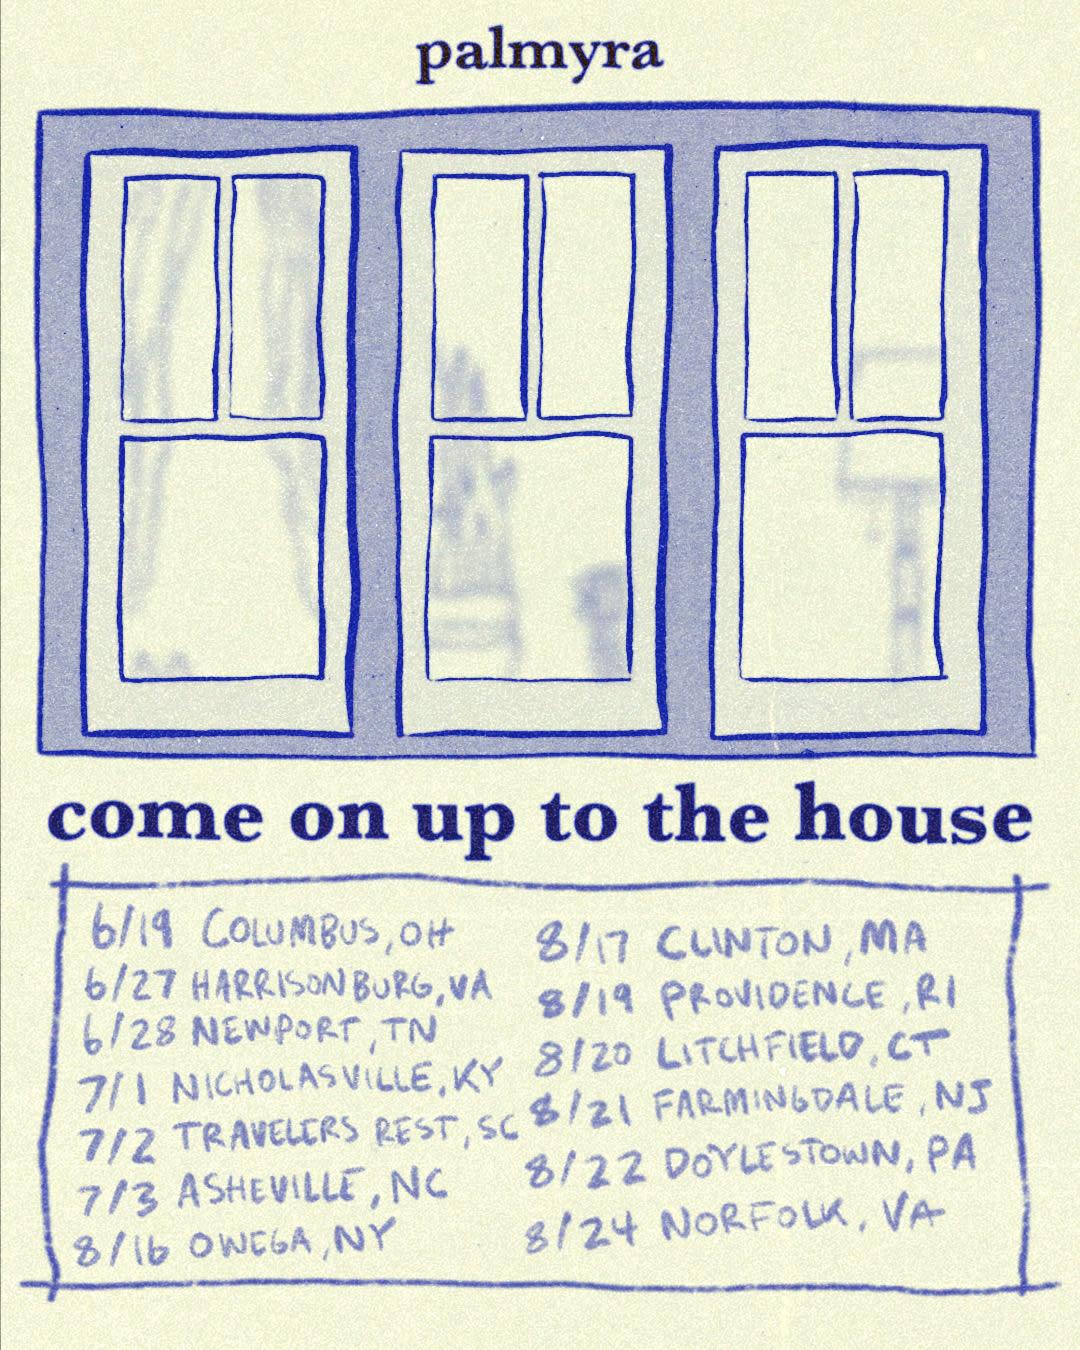 palmyra
come on up to the house
6/19 COLUMBUS, OH
6/27 HARRISONBURG, VA
6/28 NEWPORT, TN
7/1 NICHOLASVILLE, KY
7/2 TRAVELERS REST, SC
7/3 ASHEVILLE, NC
8/16 OWEGA, NY
8/17 CLINTON, MA
8/19 PROVIDENCE, RI
8/20 LITCHFIELD, CT
8/21 FARMINGDALE, NJ
8/22 DOYLESTOWN, PA
8/24 NORFOLK, VA